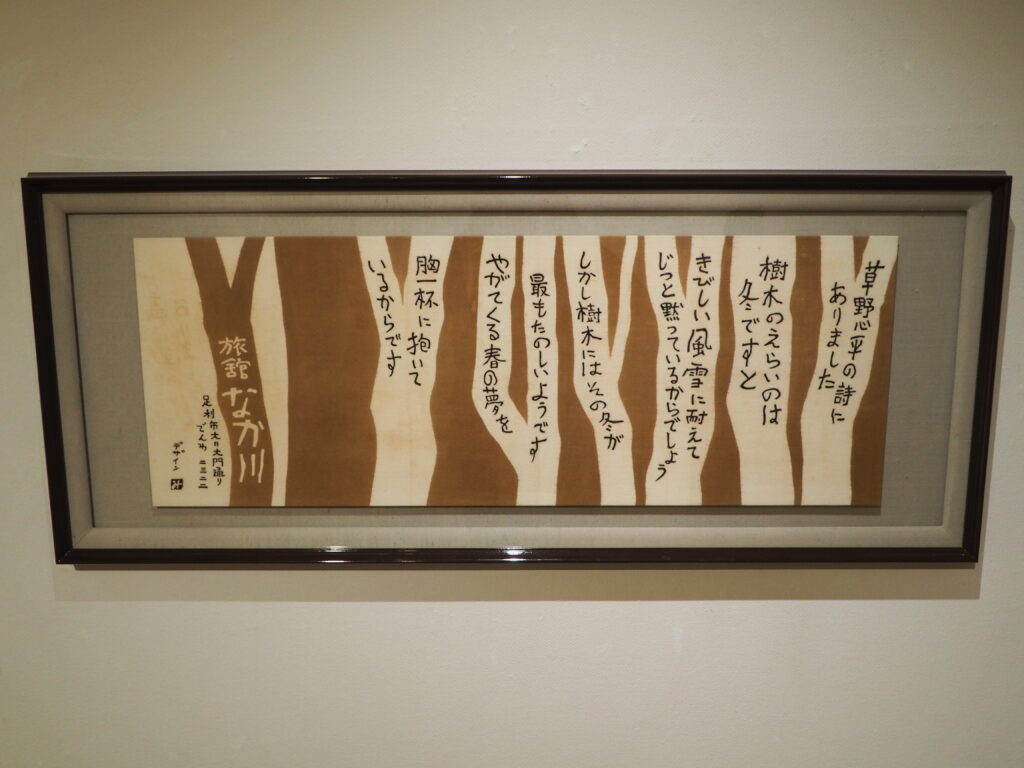 草野心平の詩に
ありました
樹木のえらいのは
冬ですと
きびしい風雪に耐えて
じっと黙っているからでしょう
しかし樹木にはその冬が
最もたのしいようです
やがてくる春の夢を
胸一杯に抱いて
いるからです
旅舘
なか川
足利市大日大門通り
でんわ 二三二二
デザイン